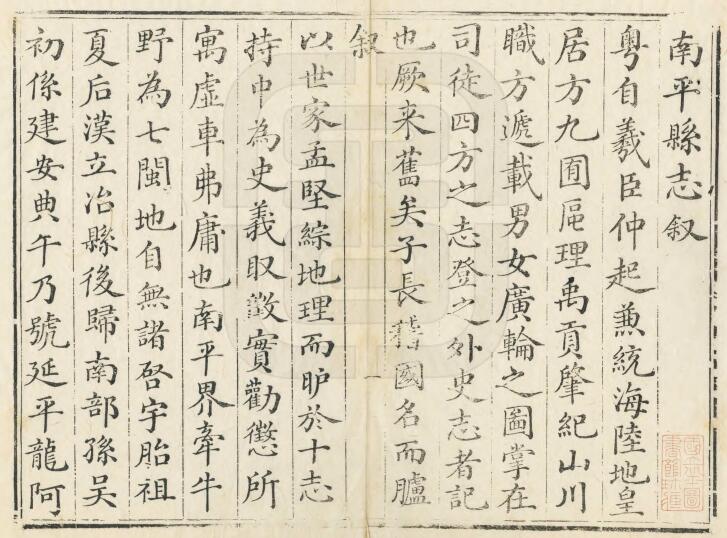 南平縣志叙
粵自羲臣仲起兼統海陸地皇
居方九囿區理禹貢肇紀山川
職方遞載男女廣輪之圖掌在
司徒四方之志登之外史志者記
也厥来舊矣子長籍國名而臚
叙
以世家孟堅綜地理而昈於十志
持中為史義取徵實勸懲所
寓虛車弗庸也南平界牽牛
野為七閩地自無諸啓宇胎祖
夏后漢立冶縣後歸南部孫吳
初係建安典午乃號延平龍阿